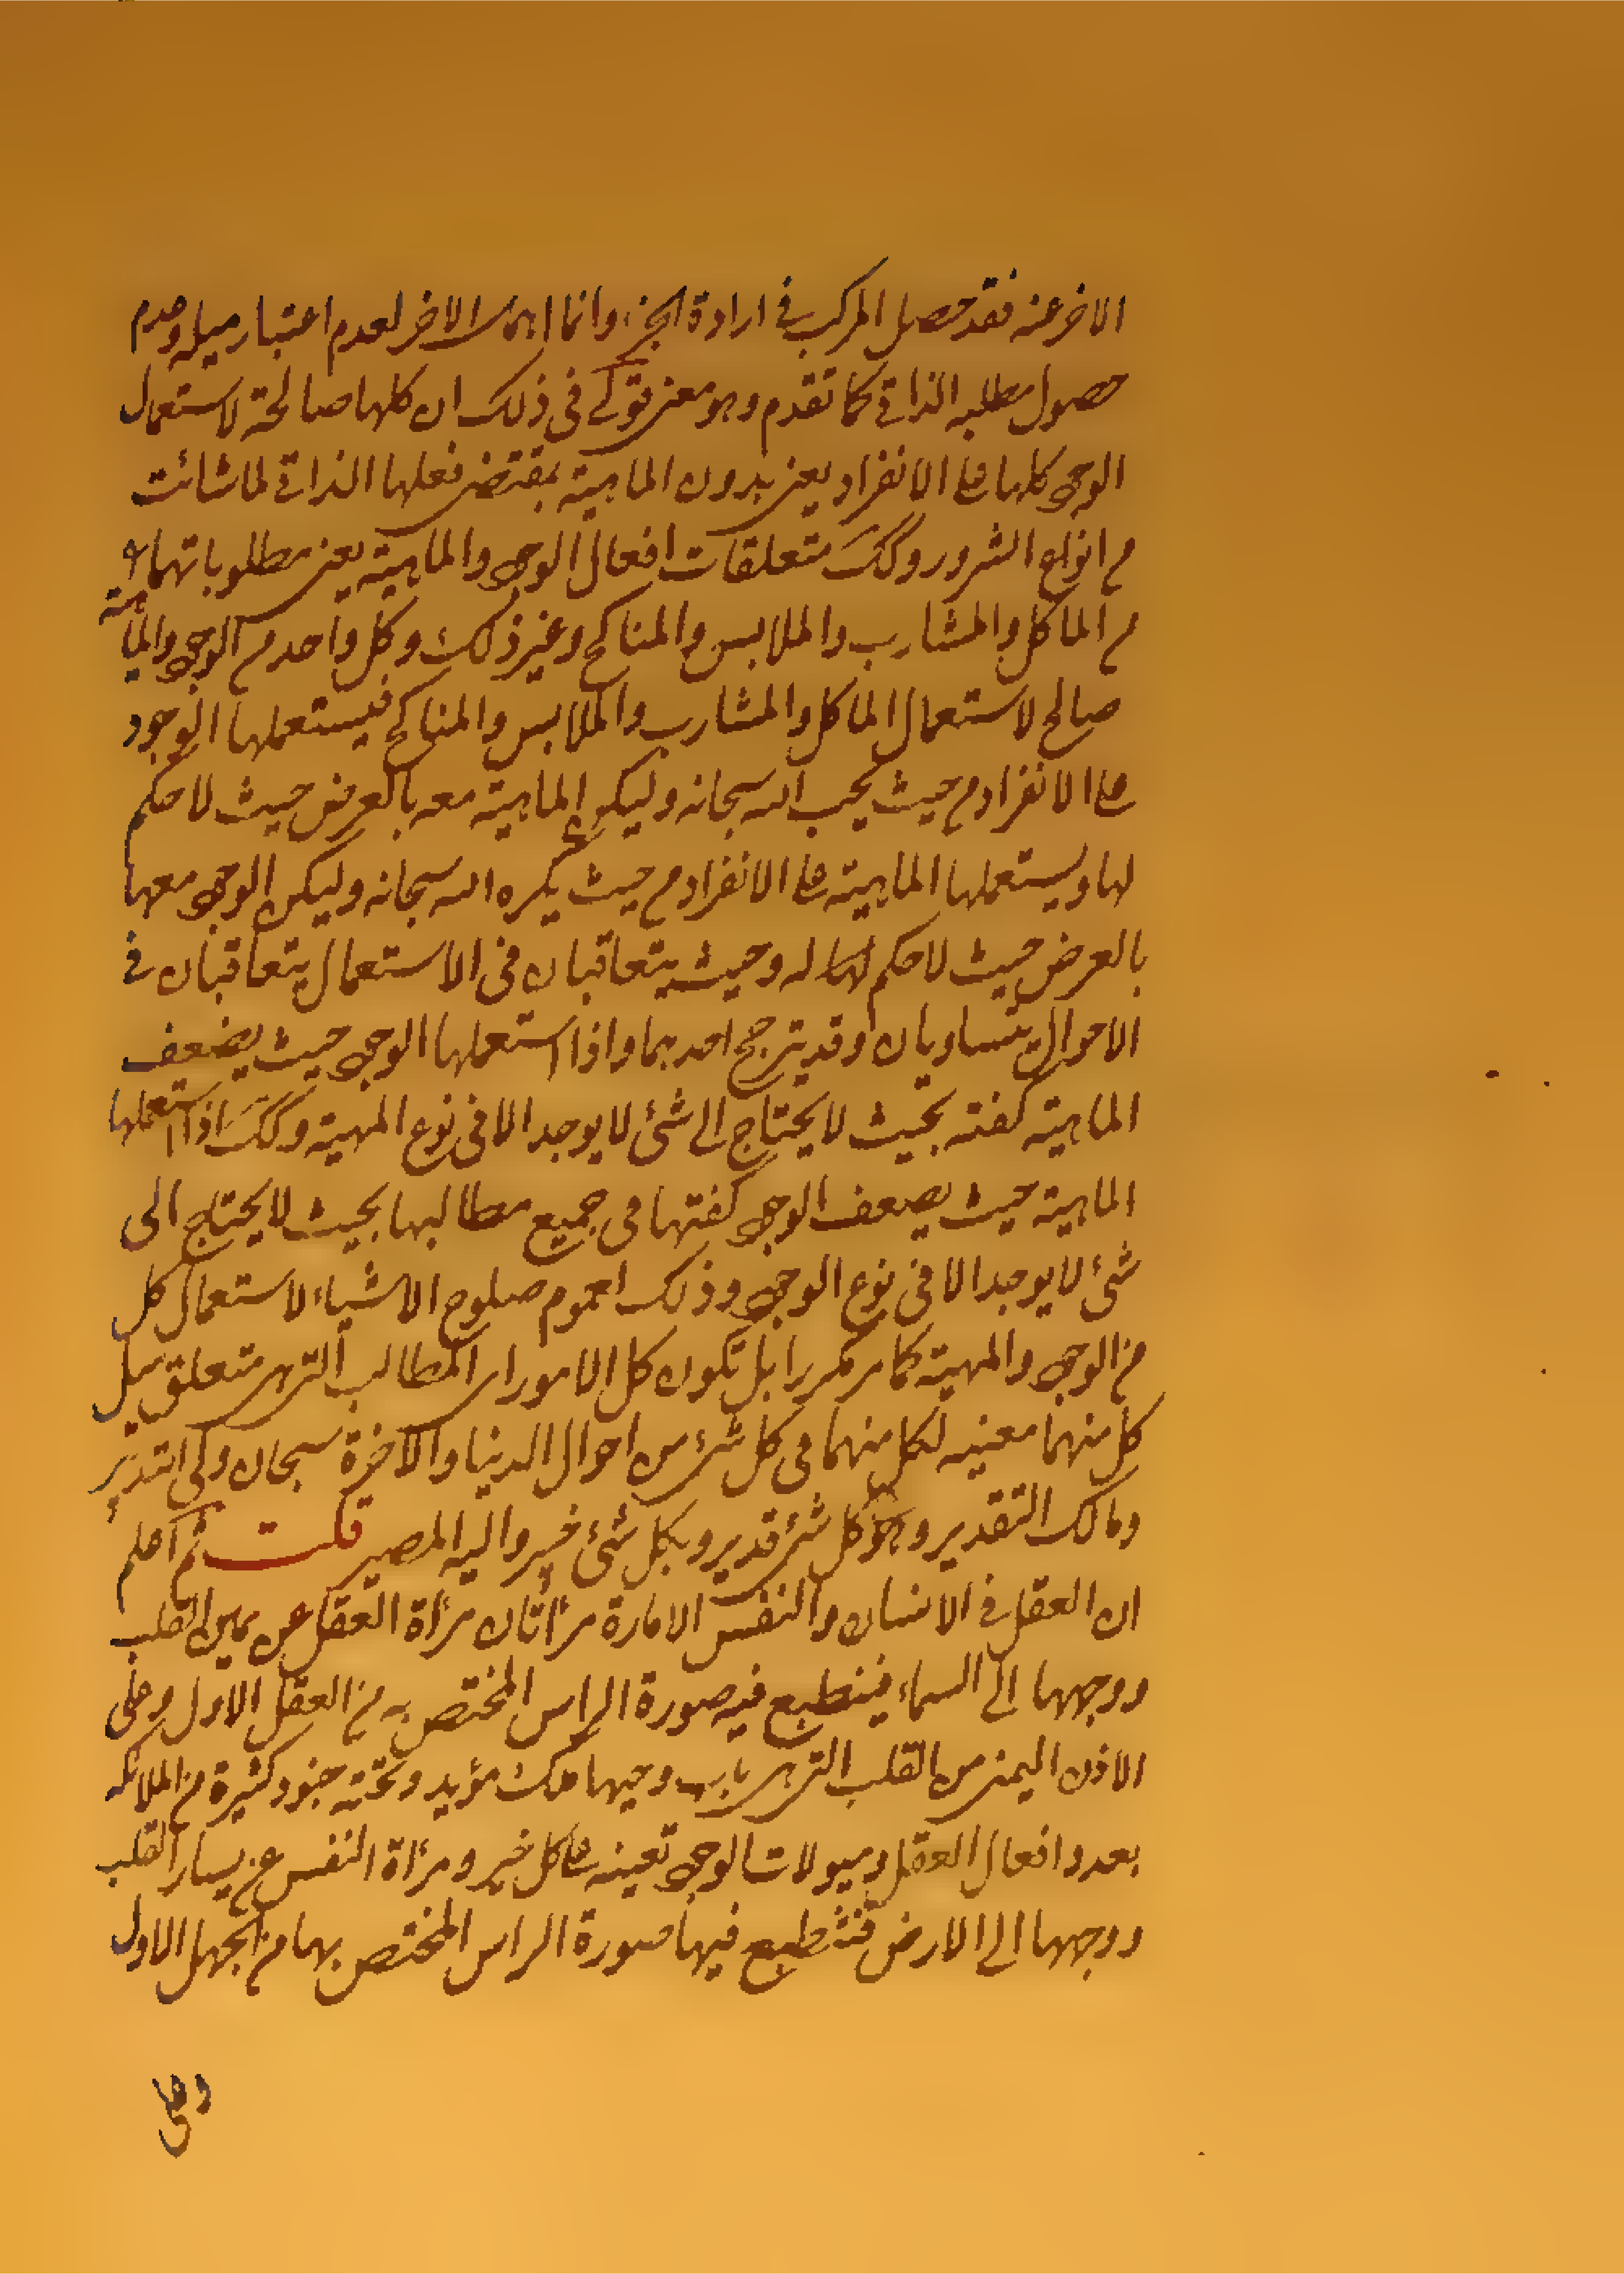 الاخر عنه فقد حصل المركب فی ارادة الخير وانما اهملت الاخر لعدم اعتبار ميله وعدم
حصول مطلبه الذاتی كما تقدم وهو معنی قولی فی ذلك ان كلها صالحة لاستعمال
الوجو كلها علی الانفراد يعنی بدون الماهية بمقتضی فعلها الذاتی لما شائت
من انواع الشرور وكك متعلقات افعال الوجو والماهية يعنی مطلوباتهما
من الماكل والمشارب والملابس والمناكح وغير ذلك وكل واحد من الوجو والماهية
صالح لاستعمال الماكل والمشارب والملابس والمناكح فيستعملها الوجود
علی الانفراد من حيث يحب الله سبحانه وليكن الماهية معه بالعرض حيث لا حكم
لها ويستعملها الماهية علی الانفراد من حيث يكره الله سبحانه وليكن الوجو معها
بالعرض حيث لا حكم له وحيث يتعاقبان فی الاستعمال يتعاقبان فی
الاحوال يتساويان وقد يترجح احدهما واذا استعملها الوجو حيث يضعف
الماهية كفته بحيث لا يحتاج الی شئ لا يوجد الا فی نوع المهية وكك اذا استعملها
الماهية حيث يضعف الوجو كفتها فی جميع مطالبها بحيث لا يحتاج الی
شئ لا يوجد الا فی نوع الوجو وذلك لعموم صلوح الاشياء لاستعمال كل
من الوجو والمهية كما مر مكررا بل تكون كل الامور ای المطالب التی هی متعلق ميل
كل منهما معينه لكل منهما فی كل شئ من احوال الدنيا والاخرة سبحان ولی التدبير
ومالك التقدير وهو علی كل شئ قدير وبكل شئ خبير واليه المصير قلت ثم اعلم
ان العقل فی الانسان والنفس الامارة مرأتان مرأة العقل عن يمين القلب
ووجهها الی السماء فينطبع فيه صورة الراس المختص به من العقل الاول وعلی
الاذن اليمنی من القلب التی هی باب وجهها ملك مؤيد وتحته جنود كثيرة من الملائكه
بعدد افعال العقل وميولات الوجو تعينه علی كل خير ومرأة النفس عن يسار القلب
ووجهها الی الارض فتنطبع فيها صورة الراس المختص بها من الجهل الاول
وعلی